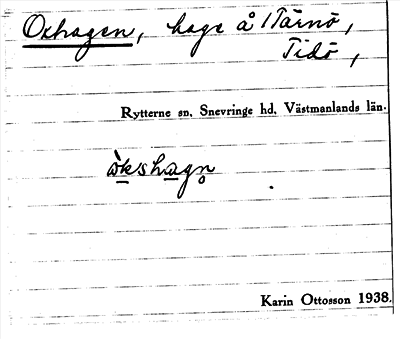 Oxhagen, hage å Tärnö,
Tidö,
Rytterne sn, Snevringe hd, Västmanlands län.
ò̱ksha̱gn̥
Karin Ottosson 1938.